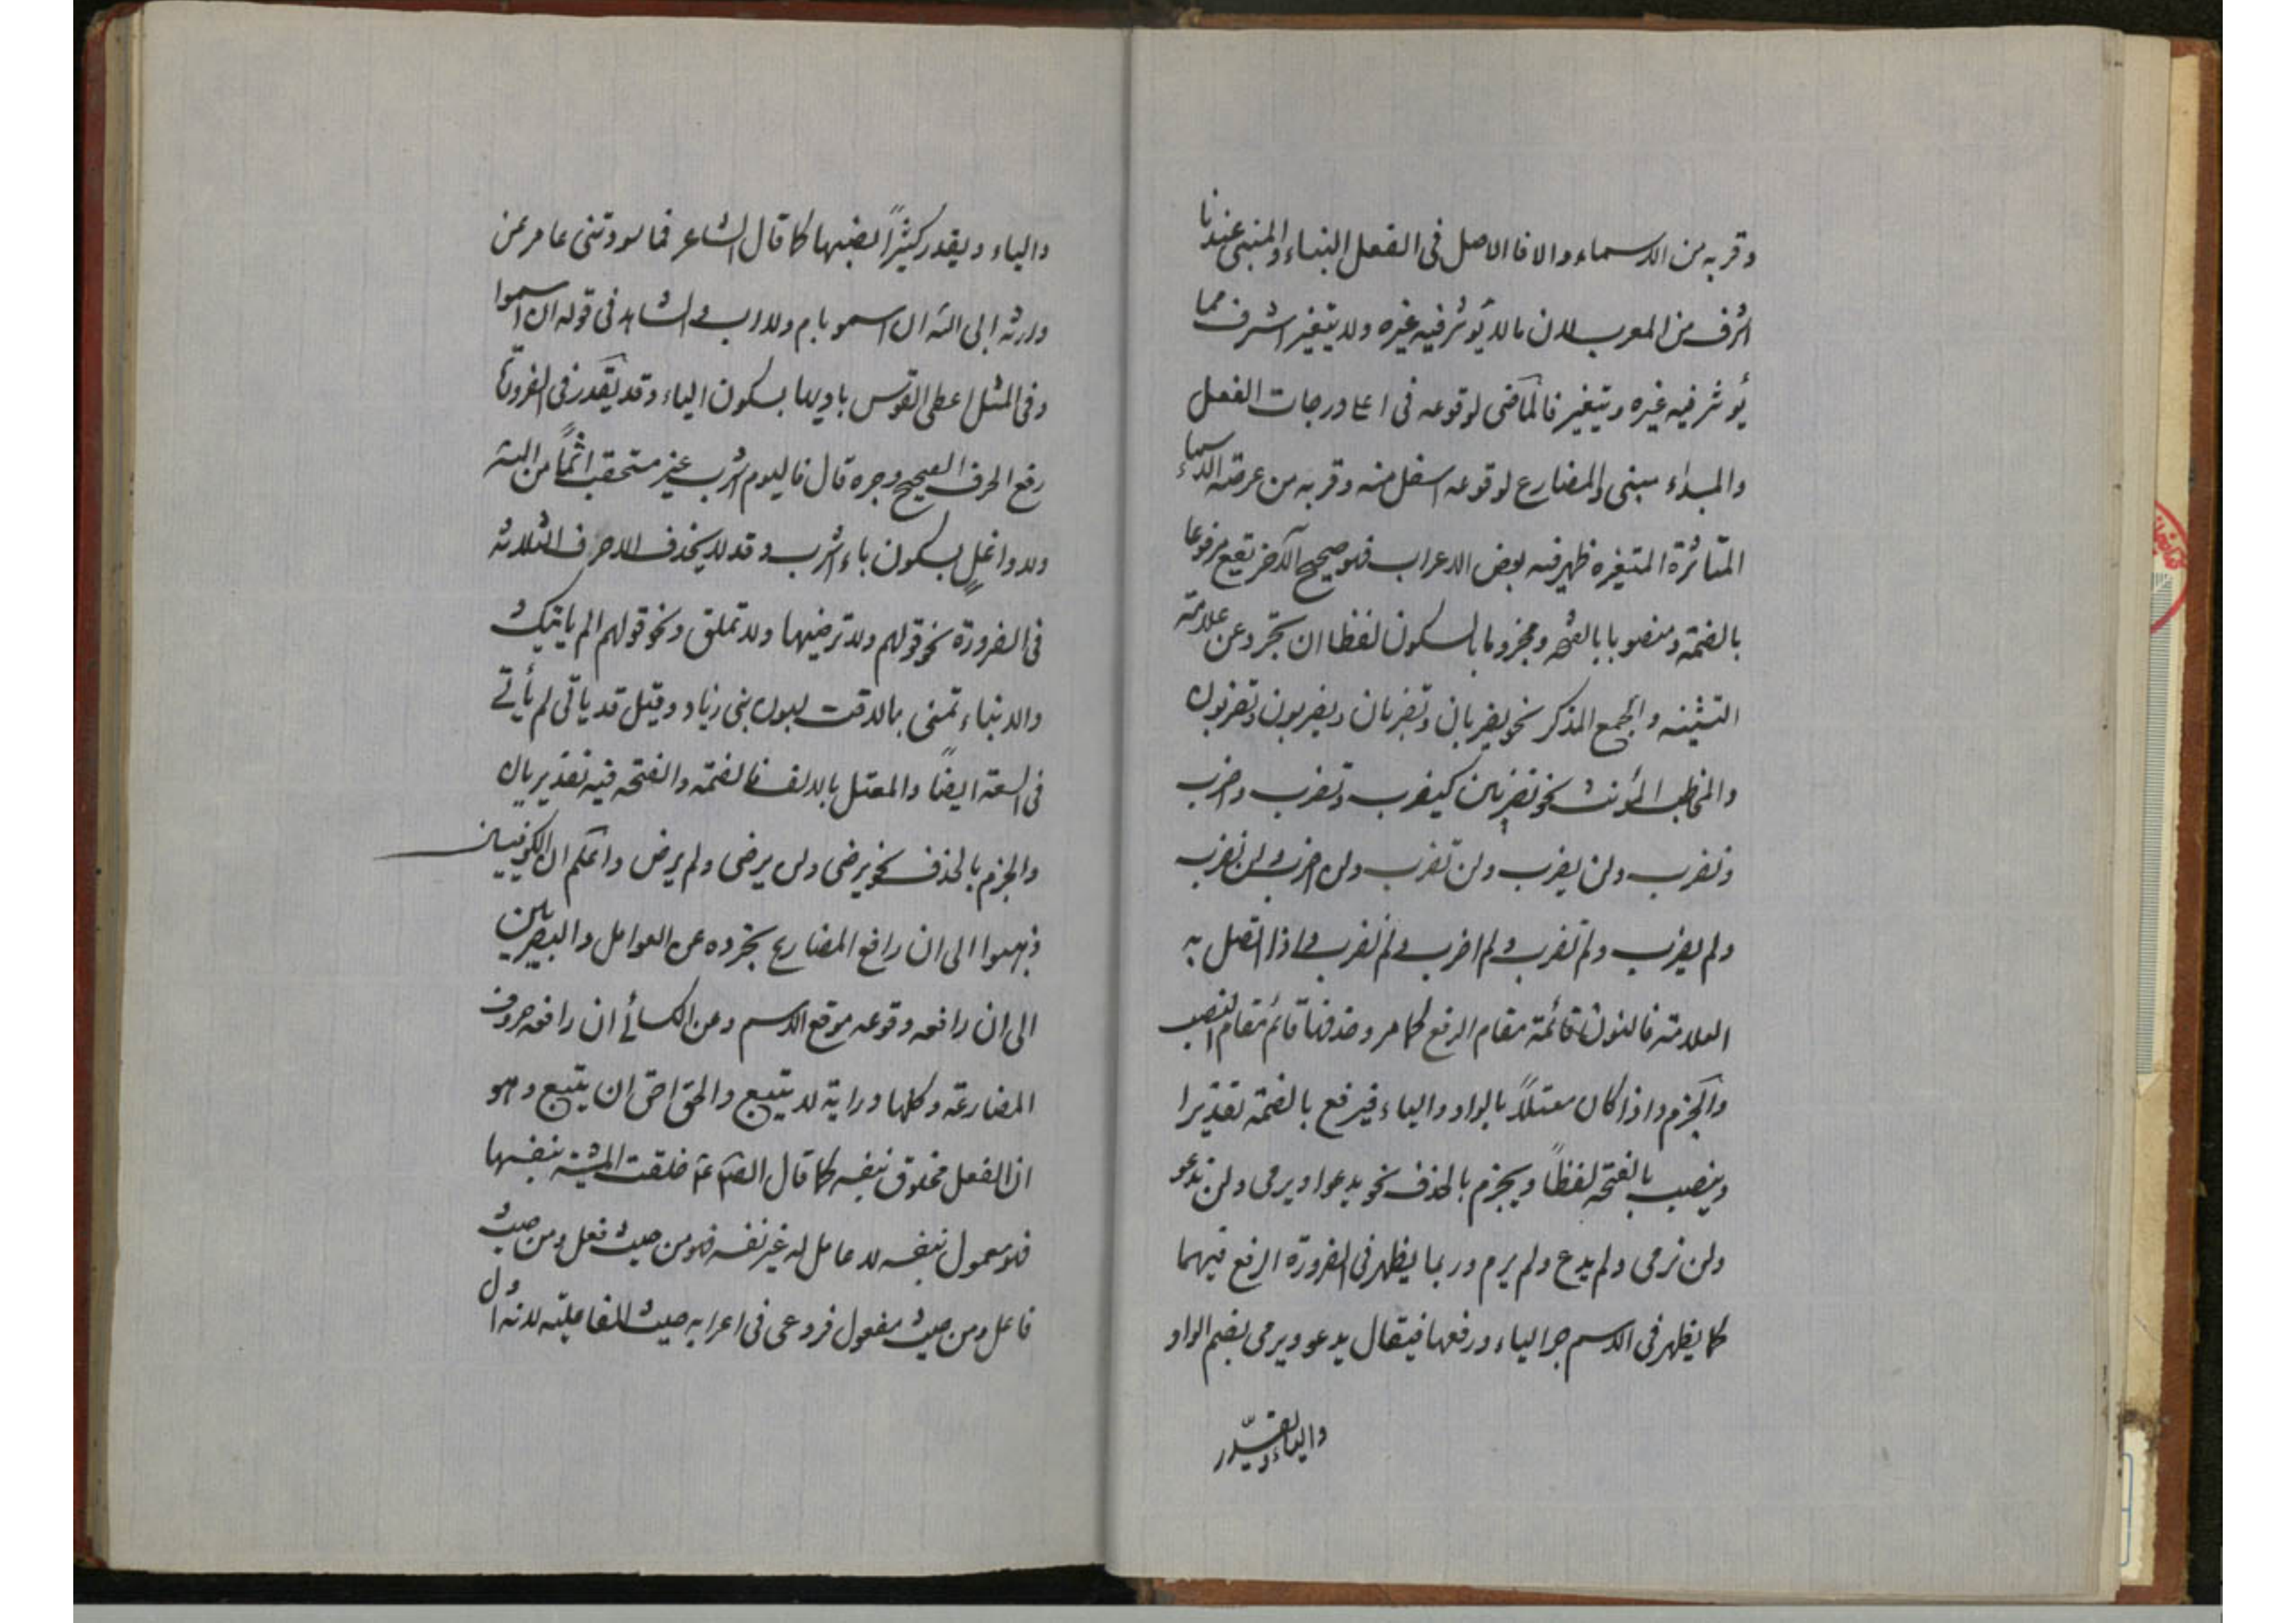 وقربه من الاسماء والا فالاصل فى الفعل البناء والمبنى عندنا
اشرف من المعرب لان ما لا يؤثر فيه غيره ولا يتغير اشرف مما
يؤثر فيه غيره ويتغير فالماضى لوقوعه فى اعلا درجات الفعل
والمبداء مبنى والمضارع لوقوعه اسفل منه وقربه من عرصة الاسماء
المتاثرة المتغيره ظهر فيه بعض الاعراب فهو صحيح الآخر يقع مرفوعا
بالضمة ومنصوبا بالفتحه ومجزوما بالسكون لفظا ان تجرد عن علامة
التثنيه والجمع المذكر نحو يضربان وتضربان ويضربون وتضربون
والمخاطب المؤنث نحو تضربين كيضرب وتضرب واضرب
ونضرب ولن يضرب ولن تضرب ولن اضرب ولن نضرب
ولم يضرب ولم تضرب ولم اضرب ولم نضرب واذا اتصل به
العلامة فالنون قائمة مقام الرفع كما مر وحذفها قائم مقام النصب
والجزم واذا كان معتلاً بالواو والياء فيرفع بالضمة تقديرا
وينصب بالفتحه لفظاً ويجزم بالحذف نحو يدعوا ويرمى ولن ندعو
ولن نرمى ولم يدع ولم يرم وربما يظهر فى الضرورة الرفع فيهما
كما يظهر فى الاسم جر الياء ورفعها فيقال يدعو ويرمى بضم الواو
والياء ويقدر
والياء ويقدر كثيراً نصبهما كما قال الشاعر فما سودتنى عامر عن
وراثه ابى الله ان اسمو بام ولا اب والشاهد فى قوله ان اسموا
وفى المثل اعطى القوس باريها بسكون الياء وقد يقدر فى الضرورة
رفع الحرف الصحيح وجره قال فاليوم اشرب غير مستحقب اثماً من الله
ولا واغلٍ بسكون باء اشرب وقد لا يحذف الاحرف الثلاثه
فى الضرورة نحو قولهم ولا ترضيها ولا تملق ونحو قولهم الم ياتيك
والانباء تمنى بما لاقت لبون بنى زياد وقيل قد ياتى لم يأتى
فى السعة ايضاً والمعتل بالالف فالضمة والفتحه فيه تقديريان
والجزم بالحذف نحو يرضى ولن يرضى ولم يرض واعلم ان الكوفيين
ذهبوا الى ان رافع المضارع تجرده عن العوامل والبصريين
الى ان رافعه وقوعه موقع الاسم وعن الكسائى ان رافعه حروف
المضارعة وكلها دراية لا يتبع والحق احق ان يتبع وهو
ان الفعل مخلوق بنفسه كما قال خلقت المشية بنفسها
فهو معمول بنفسه لا عامل له غير نفسه فهو من حيث فعل ومن حيث
فاعل ومن حيث مفعول فروعى فى اعرابه حيث الفاعلية لانه اول